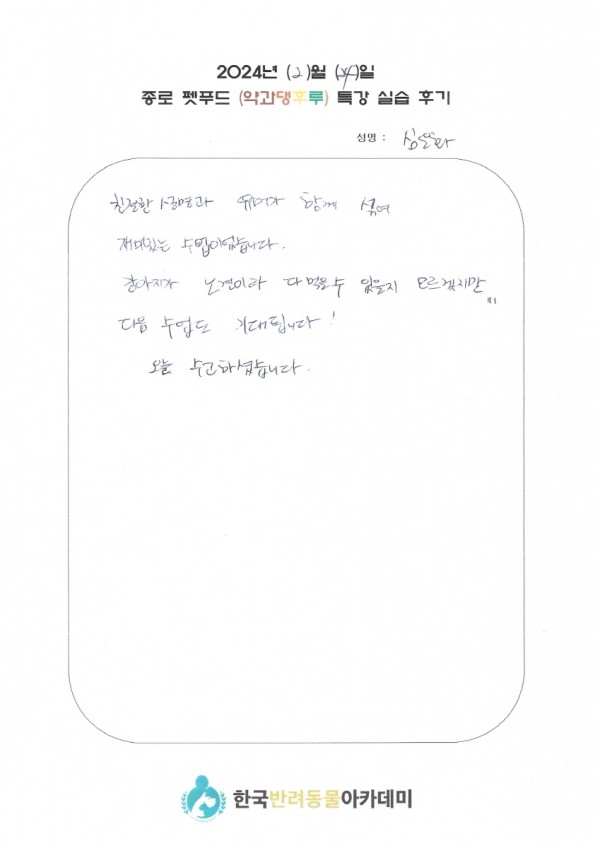 2024년 (2)월 (24)일
종로 펫푸드 (약과댕후루) 특강 실습 후기
성명 :
친절한 설명과 유머가 함께 섞여
재미있는 수업이었습니다.
강아지가 노견이라 다 먹을수 있을지 모르겠지만
다음 수업도 기대됩니다!
오늘 수고하셨습니다.
한국반려동물아카데미